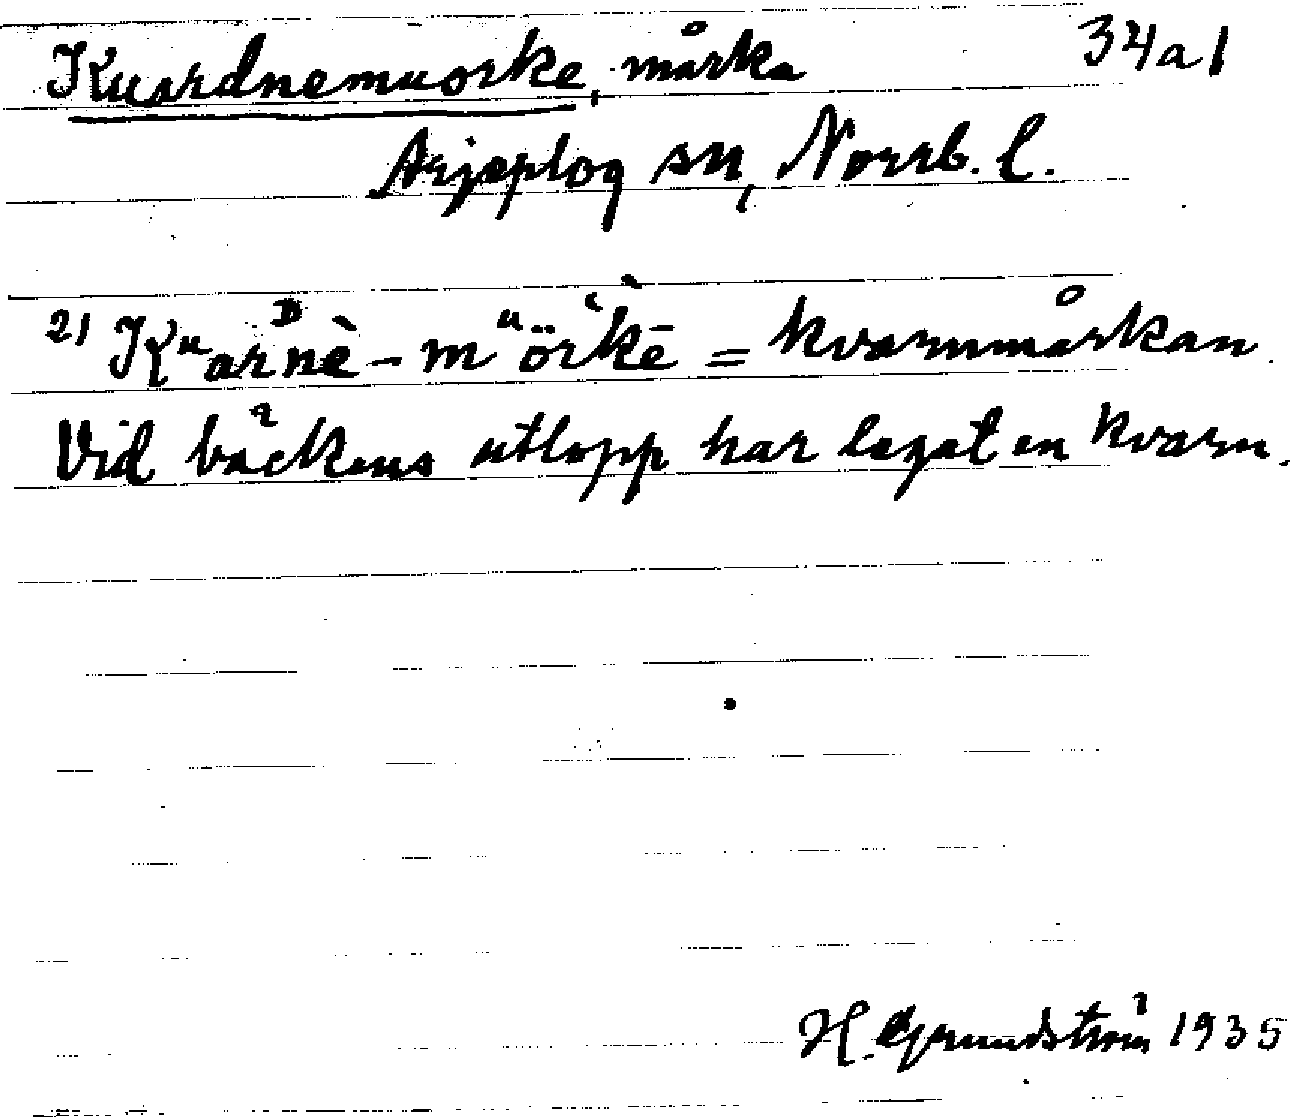 Kuardnemuorke, mårka 34a1
Arjeplog sn, Norrb. l.
21 Kᵘarᴰnè-mᵘörʻkē = kvarnmårkan.
Vid bäckens utlopp har legat en kvarn.
H. Grundström 1935